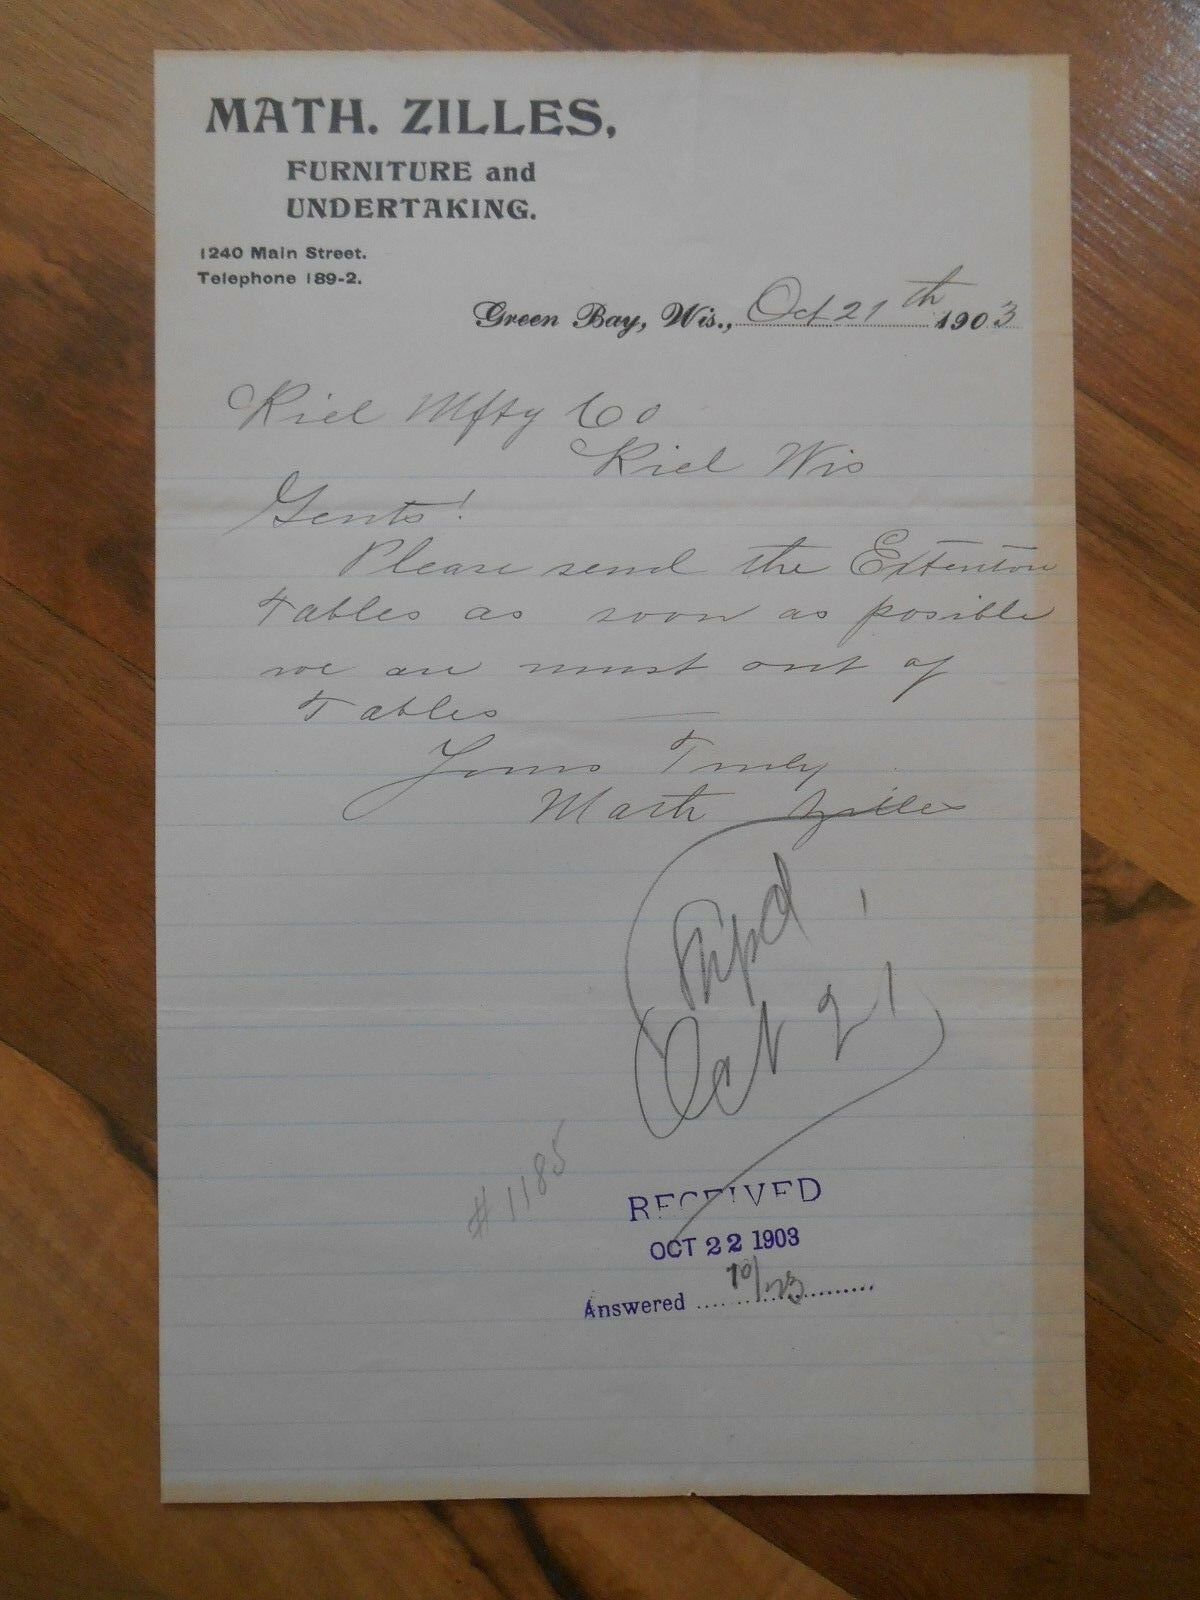 MATH. ZILLES,
FURNITURE and
UNDERTAKING.
1240 Main Street.
Telephone 189-2.
Green Bay, Wis., Oct 21th 1903
Kiel Mfty Co
Kiel Wis
Gents!
Please send the Extention
Tables as soon as posible
we are must out of
Tables
Yours Truly
Math Zilles
Ship'd
Oct 21
#1185
RECEIVED
OCT 22 1903
Answered 10/23